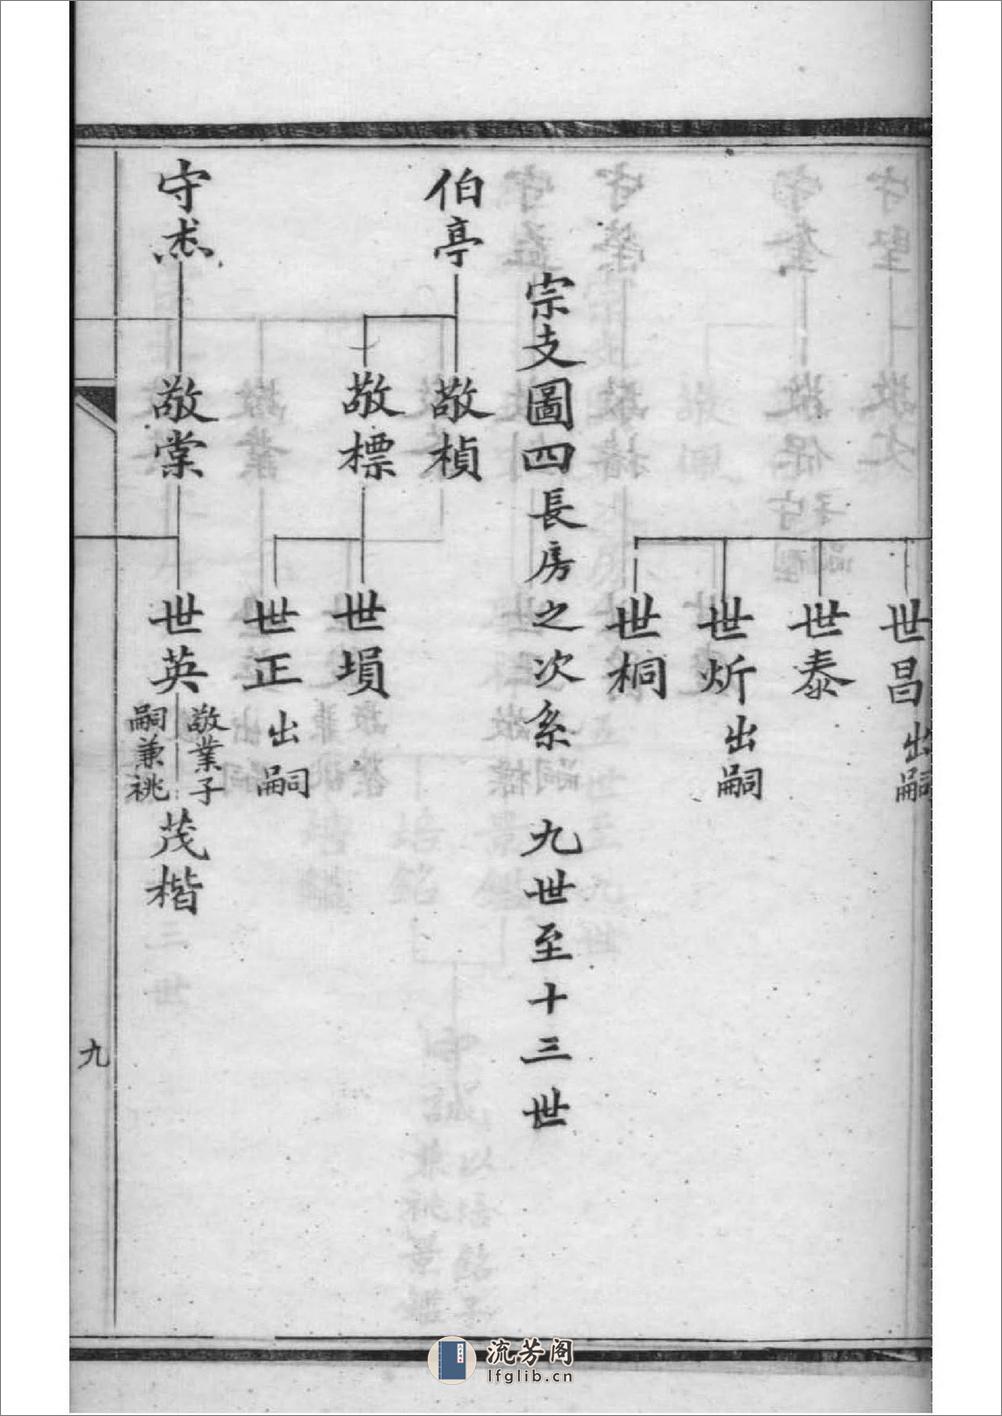 世昌出嗣
世泰
世炘出嗣
世桐
宗支圖四長房之次系 九世至十三世
伯亭
敬楨
敬標
世塤
世正出嗣
守杰
敬棠
世英
敬業子
嗣兼祧
茂楷
九
流芳阁
lfglib.cn